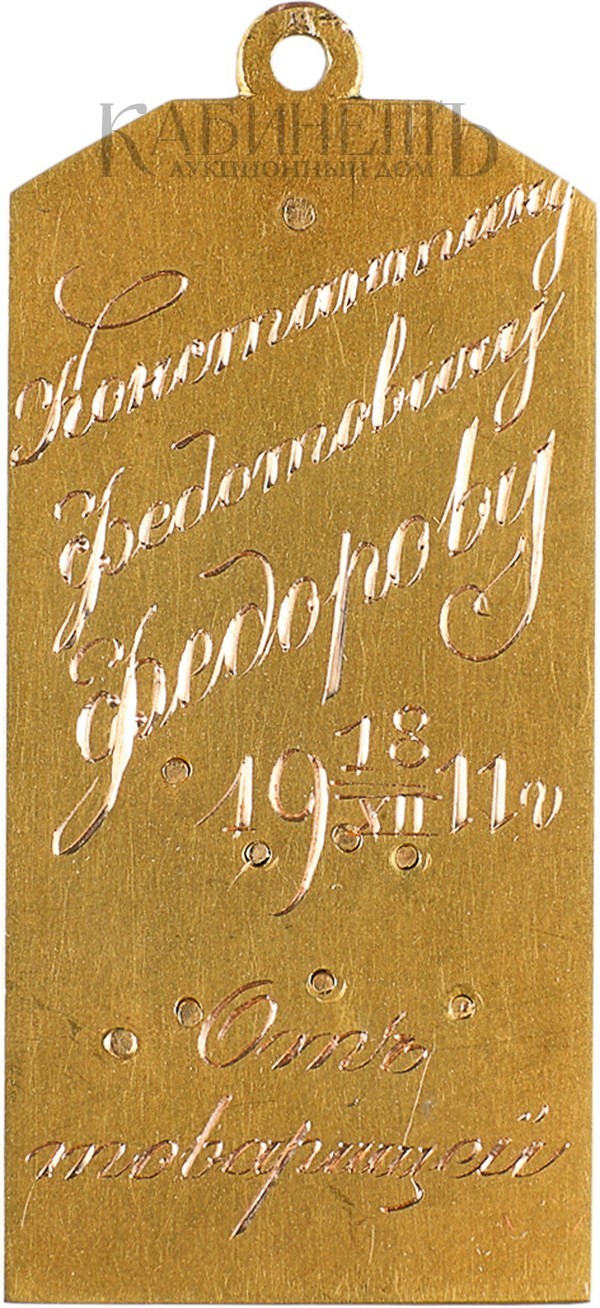 КАБИНЕТЪ
АУКЦИОННЫЙ ДОМ
Константину
Федотовичу
Федорову
19 18/XII 11 г
Отъ
товарищей